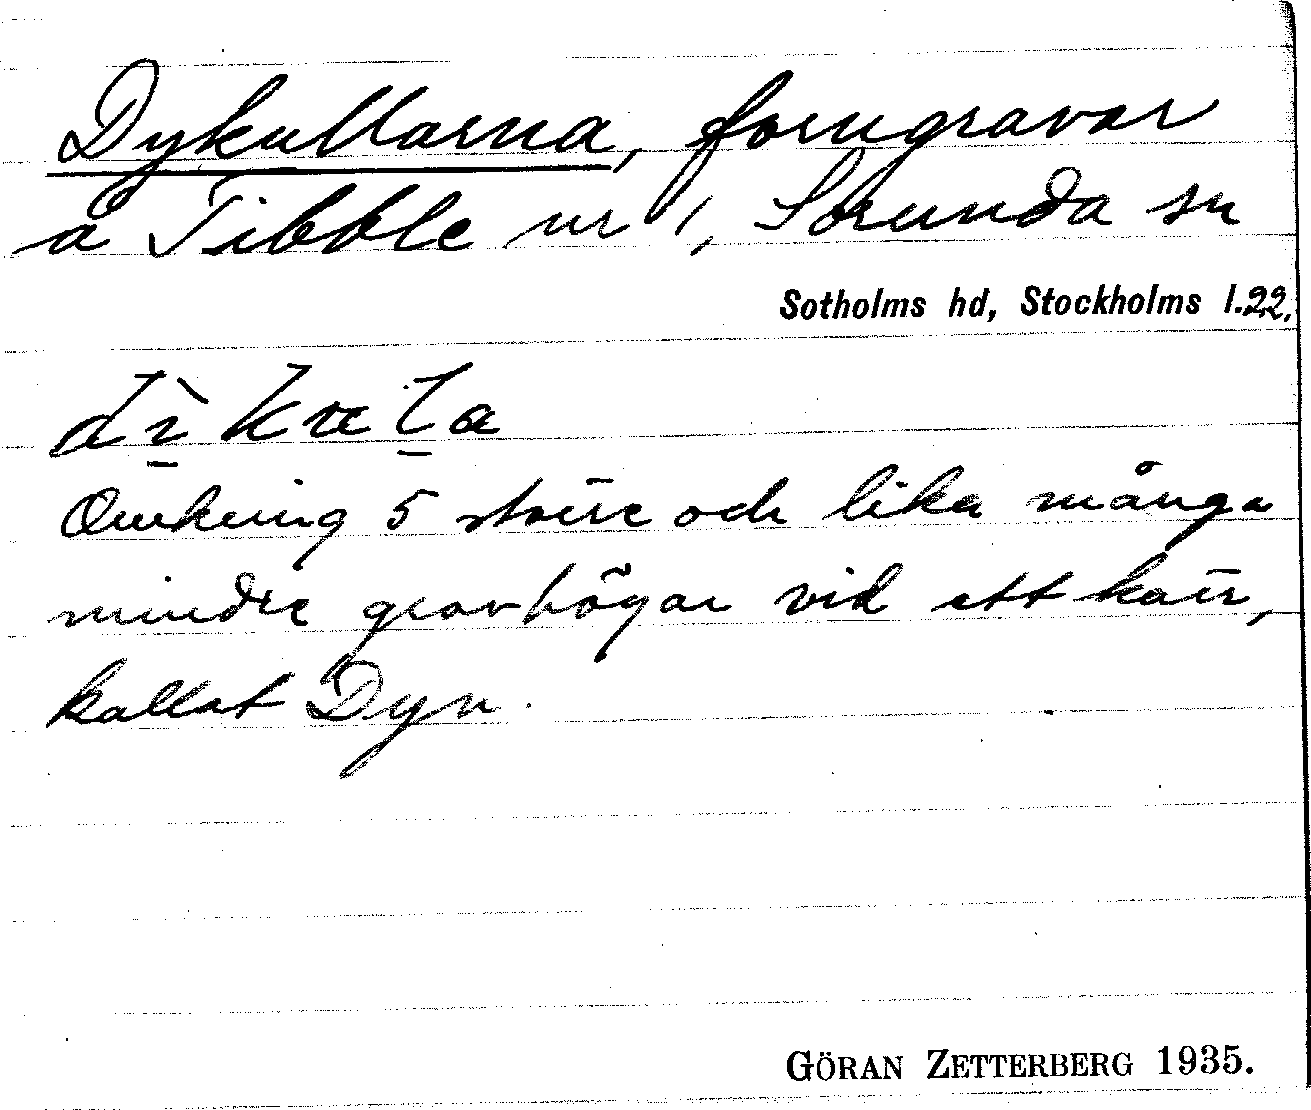 Dykullarna, forngravar
å Tibble nr 1, Sorunda sn
Sotholms hd, Stockholms l. 22.
Omkring 5 större och lika många
mindre gravhögar vid ett kärr,
kallat Dyn.
GÖRAN ZETTERBERG 1935.